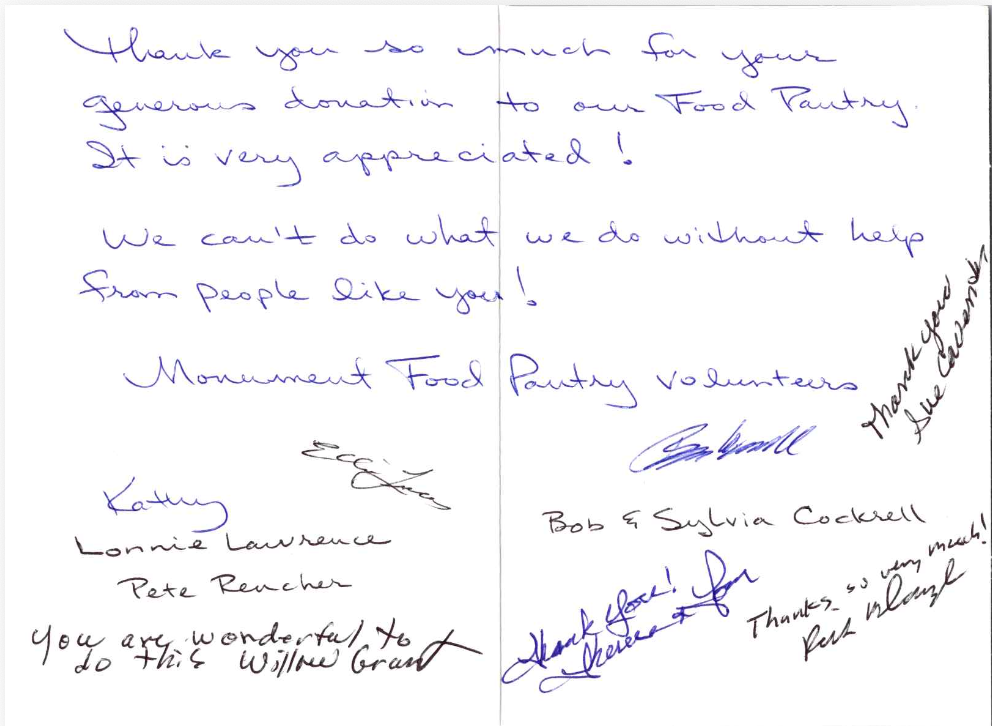 Thank you so much for your
generous donation to our Food Pantry.
It is very appreciated!
We can't do what we do without help
from people like you!
Monument Food Pantry volunteers
Thank you
Sue
Kathy
Bob & Sylvia Cockrell
Lonnie Lawrence
Pete Rencher
Thank you!
Theresa &
Thanks so very much!
you are wonderful to
do this Willow Grant